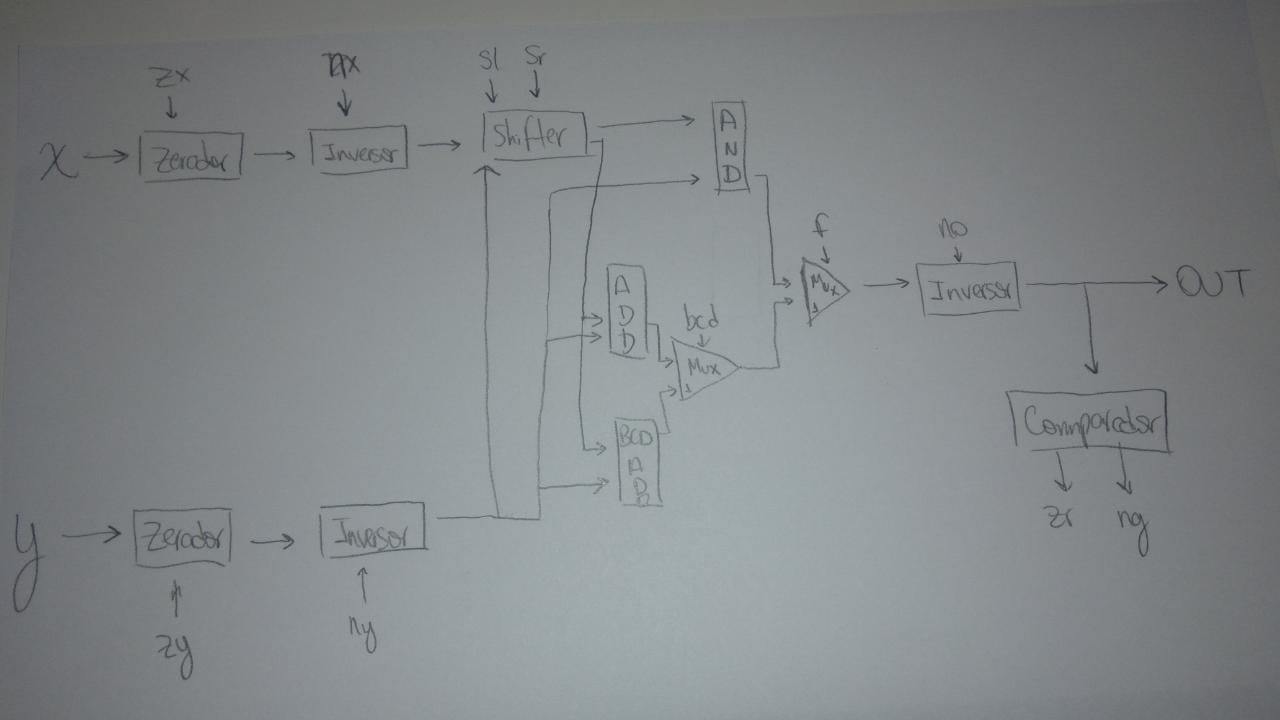 zx
nx
sl
sr
x
Zerador
Inversor
Shifter
AND
f
no
ADD
bcd
Mux
1
Inversor
OUT
Mux
1
BCD
ADD
Commparador
zr
ng
y
Zerador
Inversor
zy
ny